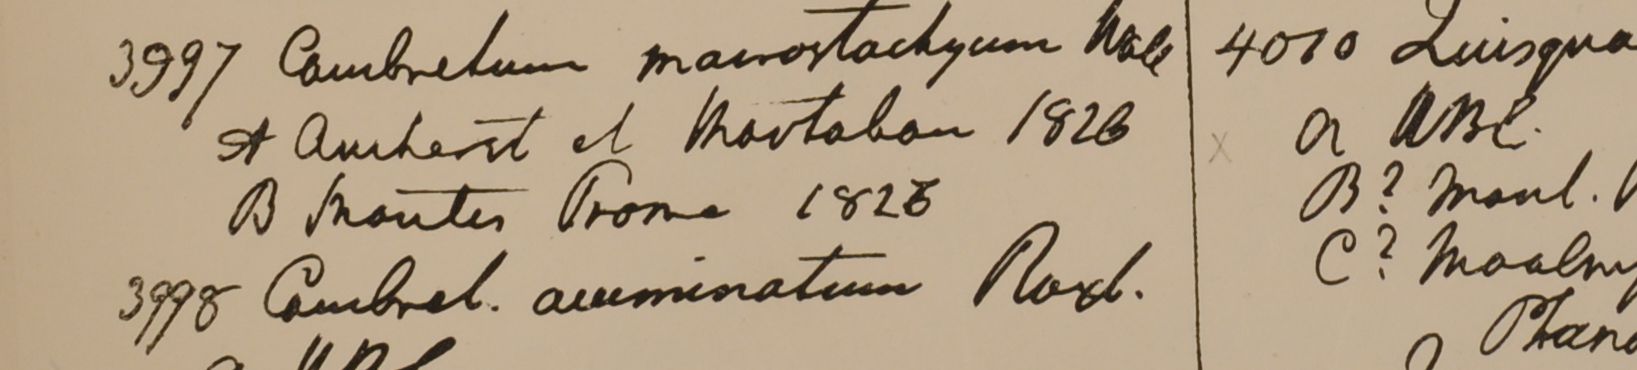 3997 Combretum macrostachyum Wall
A Amherst et Martaban 1826
B Montes Prome 1826
3998 Combret. acuminatum Roxb.
4010 Quisqua
a HBC.
B? Moul.
C? Moalm